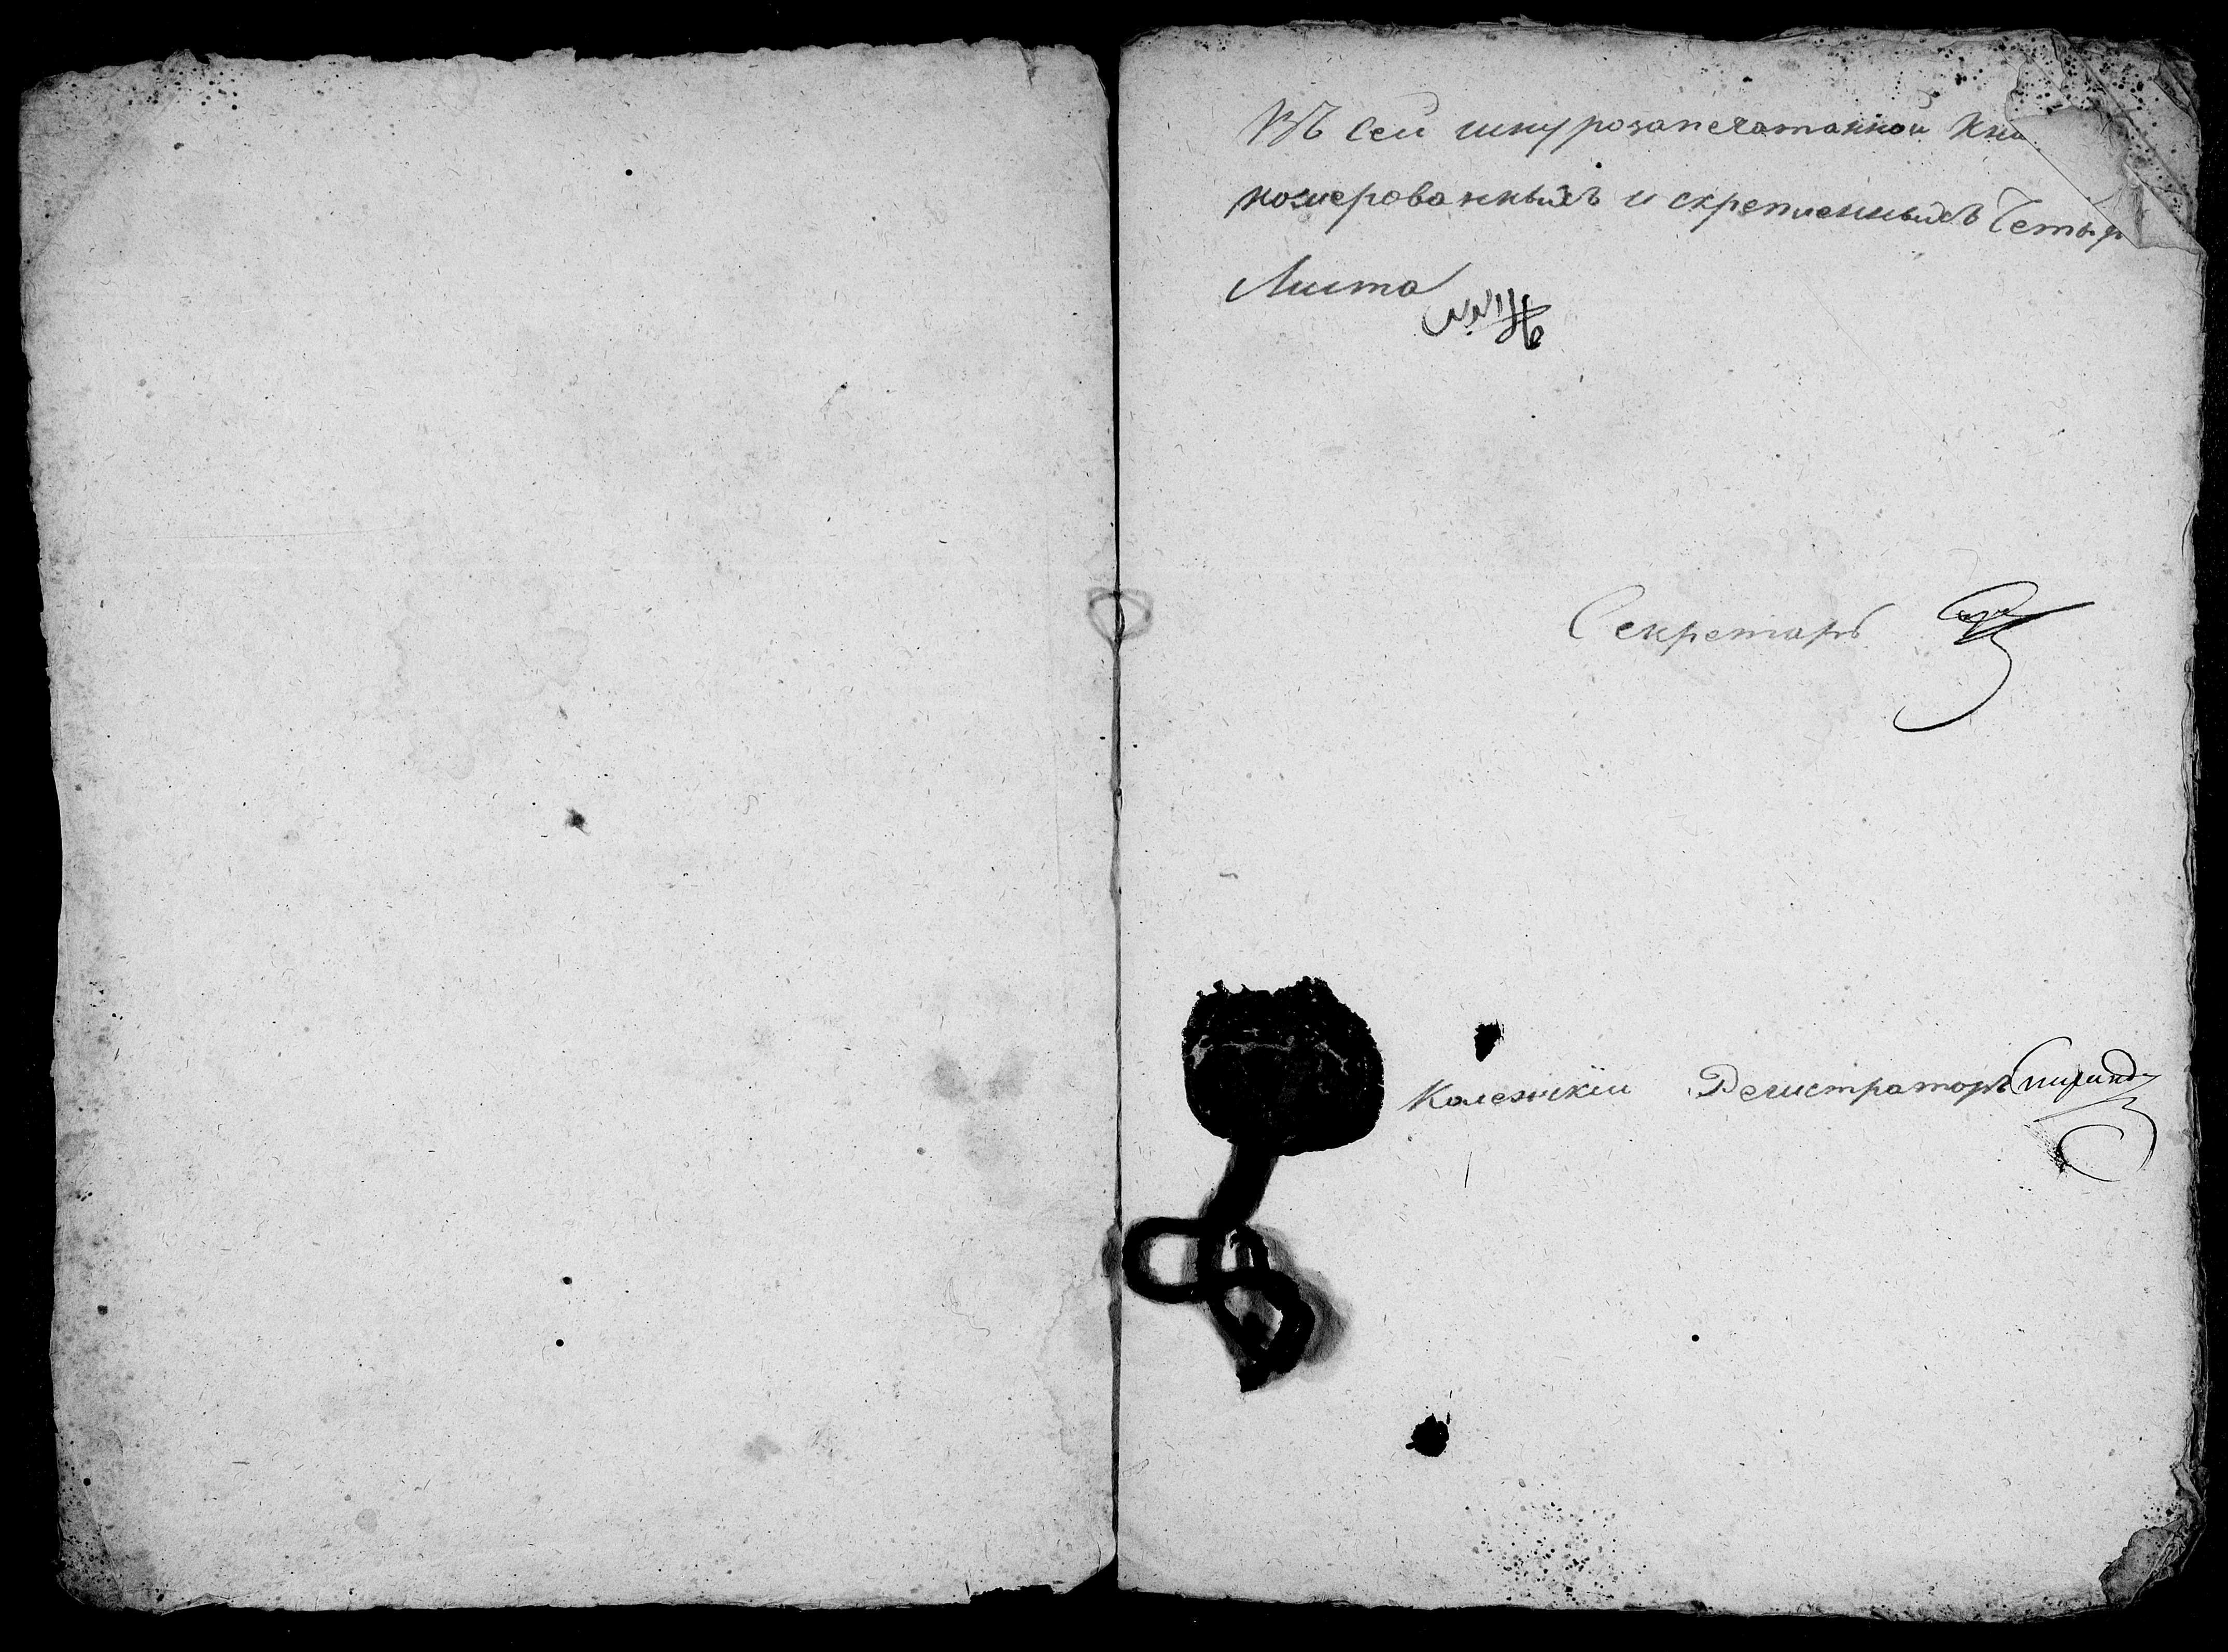 Въ сей шнурозапечатанной Кни
номерованныхъ и скрепленныхъ Четыр
Листа
Секретарь
Колежскій Регистраторъ